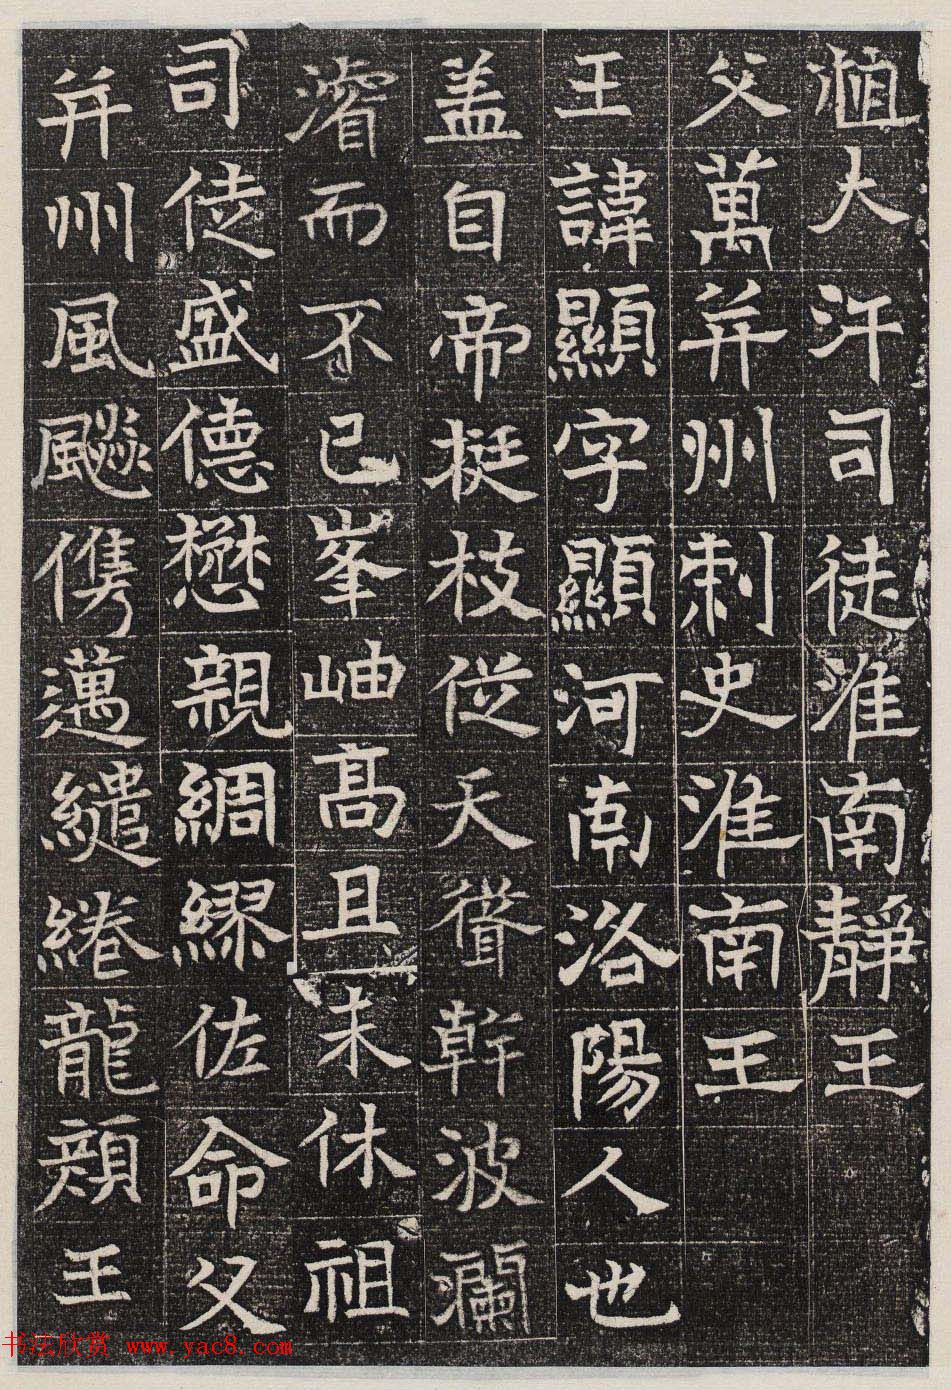 大汗司徒淮南靜王
父萬并州刺史淮南王
王諱顯字顯河南洛陽人也
盖自帝梃枝從天聳幹波瀾
濬而不已峯岫高且未休祖
司徒盛德懋親綢繆佐命父
并州風飈儁邁繾綣龍頰王
书法欣赏 www.yac8.com